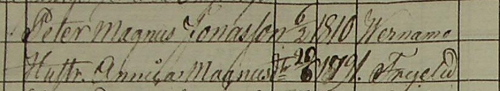 Peter Magnus Jonasson 6/2 1810 Wernamo
Hustr. Annica Magnusdr 20/6 179 Fryelid